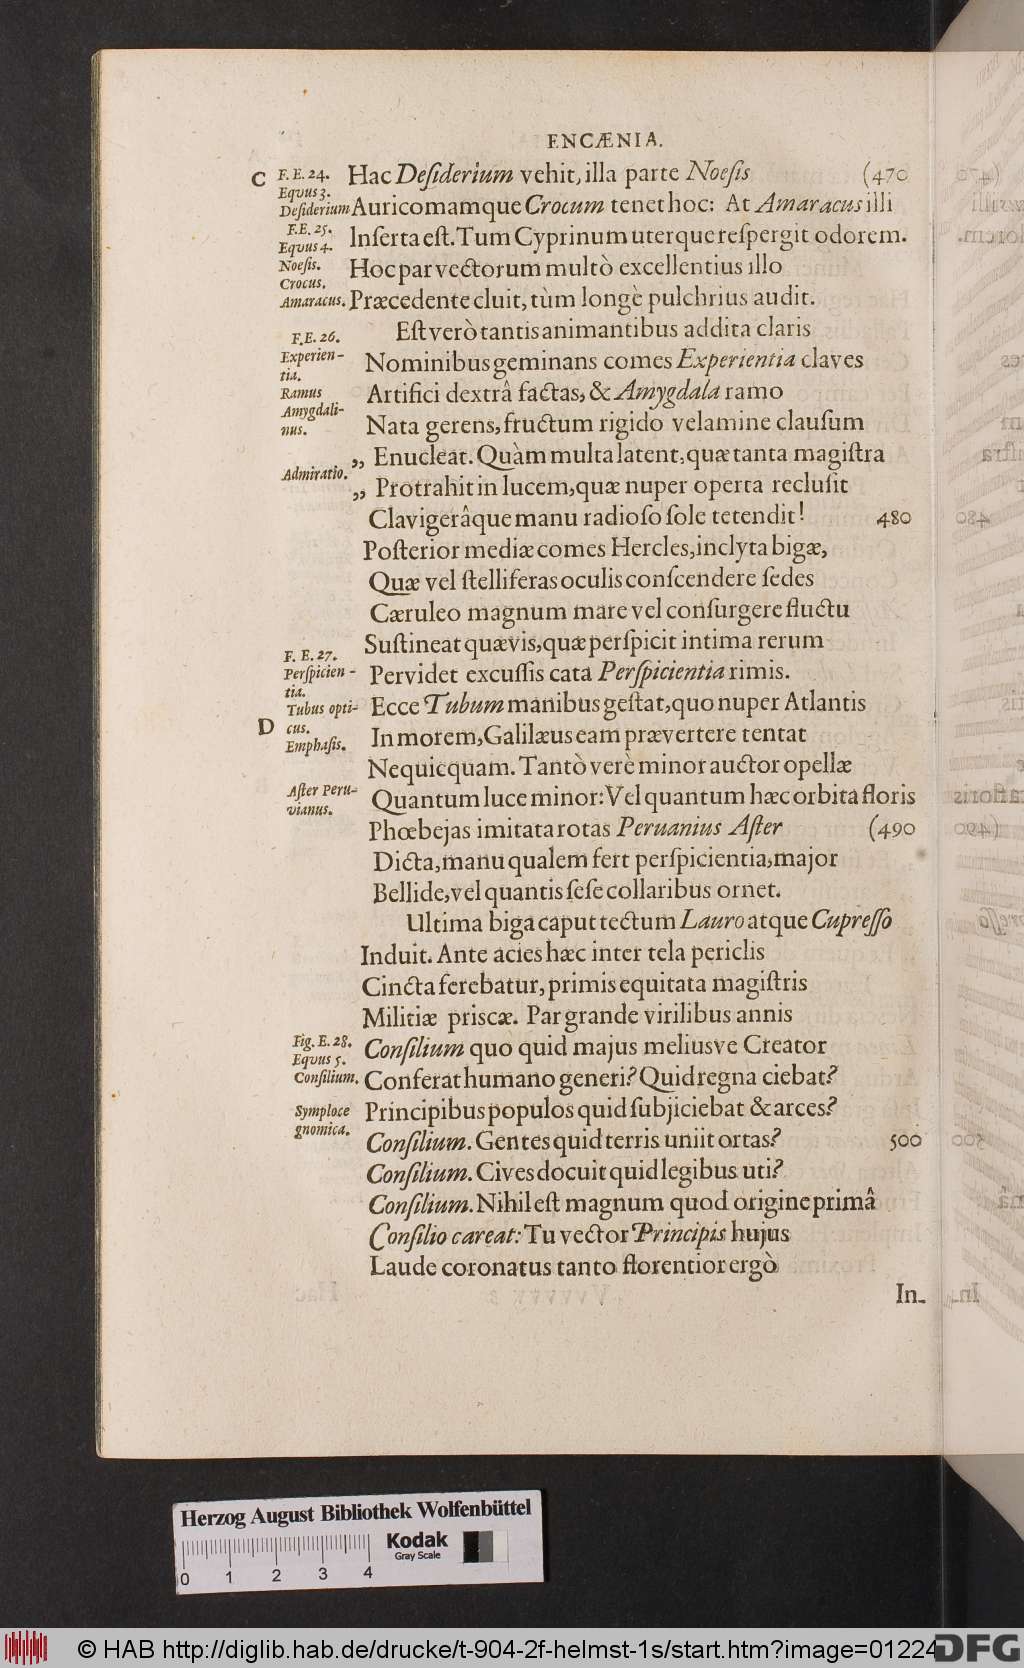 ENCÆNIA.
C F. E. 24. Hac Deſiderium vehit, illa parte Noeſis (470
Eqvus 3.
Deſiderium Auricomamque Crocum tenet hoc: At Amaracus illi
F.E. 25.
Eqvus 4. Inſerta eſt. Tum Cyprinum uterque reſpergit odorem.
Noeſis. Hoc par vectorum multò excellentius illo
Crocus.
Amaracus. Præcedente cluit, tùm longè pulchrius audit.
F.E. 26. Eſt verò tantis animantibus addita claris
Experien-
tia. Nominibus geminans comes Experientia claves
Ramus Artifici dextrâ factas, & Amygdala ramo
Amygdali-
nus. Nata gerens, fructum rigido velamine clauſum
„ Enucleat. Quàm multa latent, quæ tanta magiſtra
Admiratio.
„ Protrahit in lucem, quæ nuper operta recluſit
Clavigerâque manu radioſo ſole tetendit! 480
Poſterior mediæ comes Hercles, inclyta bigæ,
Quæ vel ſtelliferas oculis conſcendere ſedes
Cæruleo magnum mare vel conſurgere fluctu
Suſtineat quævis, quæ perſpicit intima rerum
F. E. 27.
Perſpicien-
tia. Pervidet excuſſis cata Perſpicientia rimis.
Tubus opti-
cus. Ecce Tubum manibus geſtat, quo nuper Atlantis
D Emphaſis. In morem, Galilæus eam prævertere tentat
Nequicquam. Tantò verè minor auctor opellæ
Aſter Peru-
vianus. Quantum luce minor: Vel quantum hæc orbita floris
Phœbejas imitata rotas Peruanius Aſter (490
Dicta, manu qualem fert perſpicientia, major
Bellide, vel quantis ſeſe collaribus ornet.
Ultima biga caput tectum Lauro atque Cupreſſo
Induit. Ante acies hæc inter tela periclis
Cincta ferebatur, primis equitata magiſtris
Militiæ priscæ. Par grande virilibus annis
Fig. E. 28.
Eqvus 5. Conſilium quo quid majus meliusve Creator
Conſilium. Conferat humano generi? Quid regna ciebat?
Symploce
gnomica. Principibus populos quid ſubjiciebat & arces?
Conſilium. Gentes quid terris uniit ortas? 500
Conſilium. Cives docuit quid legibus uti?
Conſilium. Nihil eſt magnum quod origine primâ
Conſilio careat: Tu vector Principis hujus
Laude coronatus tanto florentior ergò
In-
Herzog August Bibliothek Wolfenbüttel
Kodak
Gray Scale
0 1 2 3 4
© HAB http://diglib.hab.de/drucke/t-904-2f-helmst-1s/start.htm?image=01224
DFG